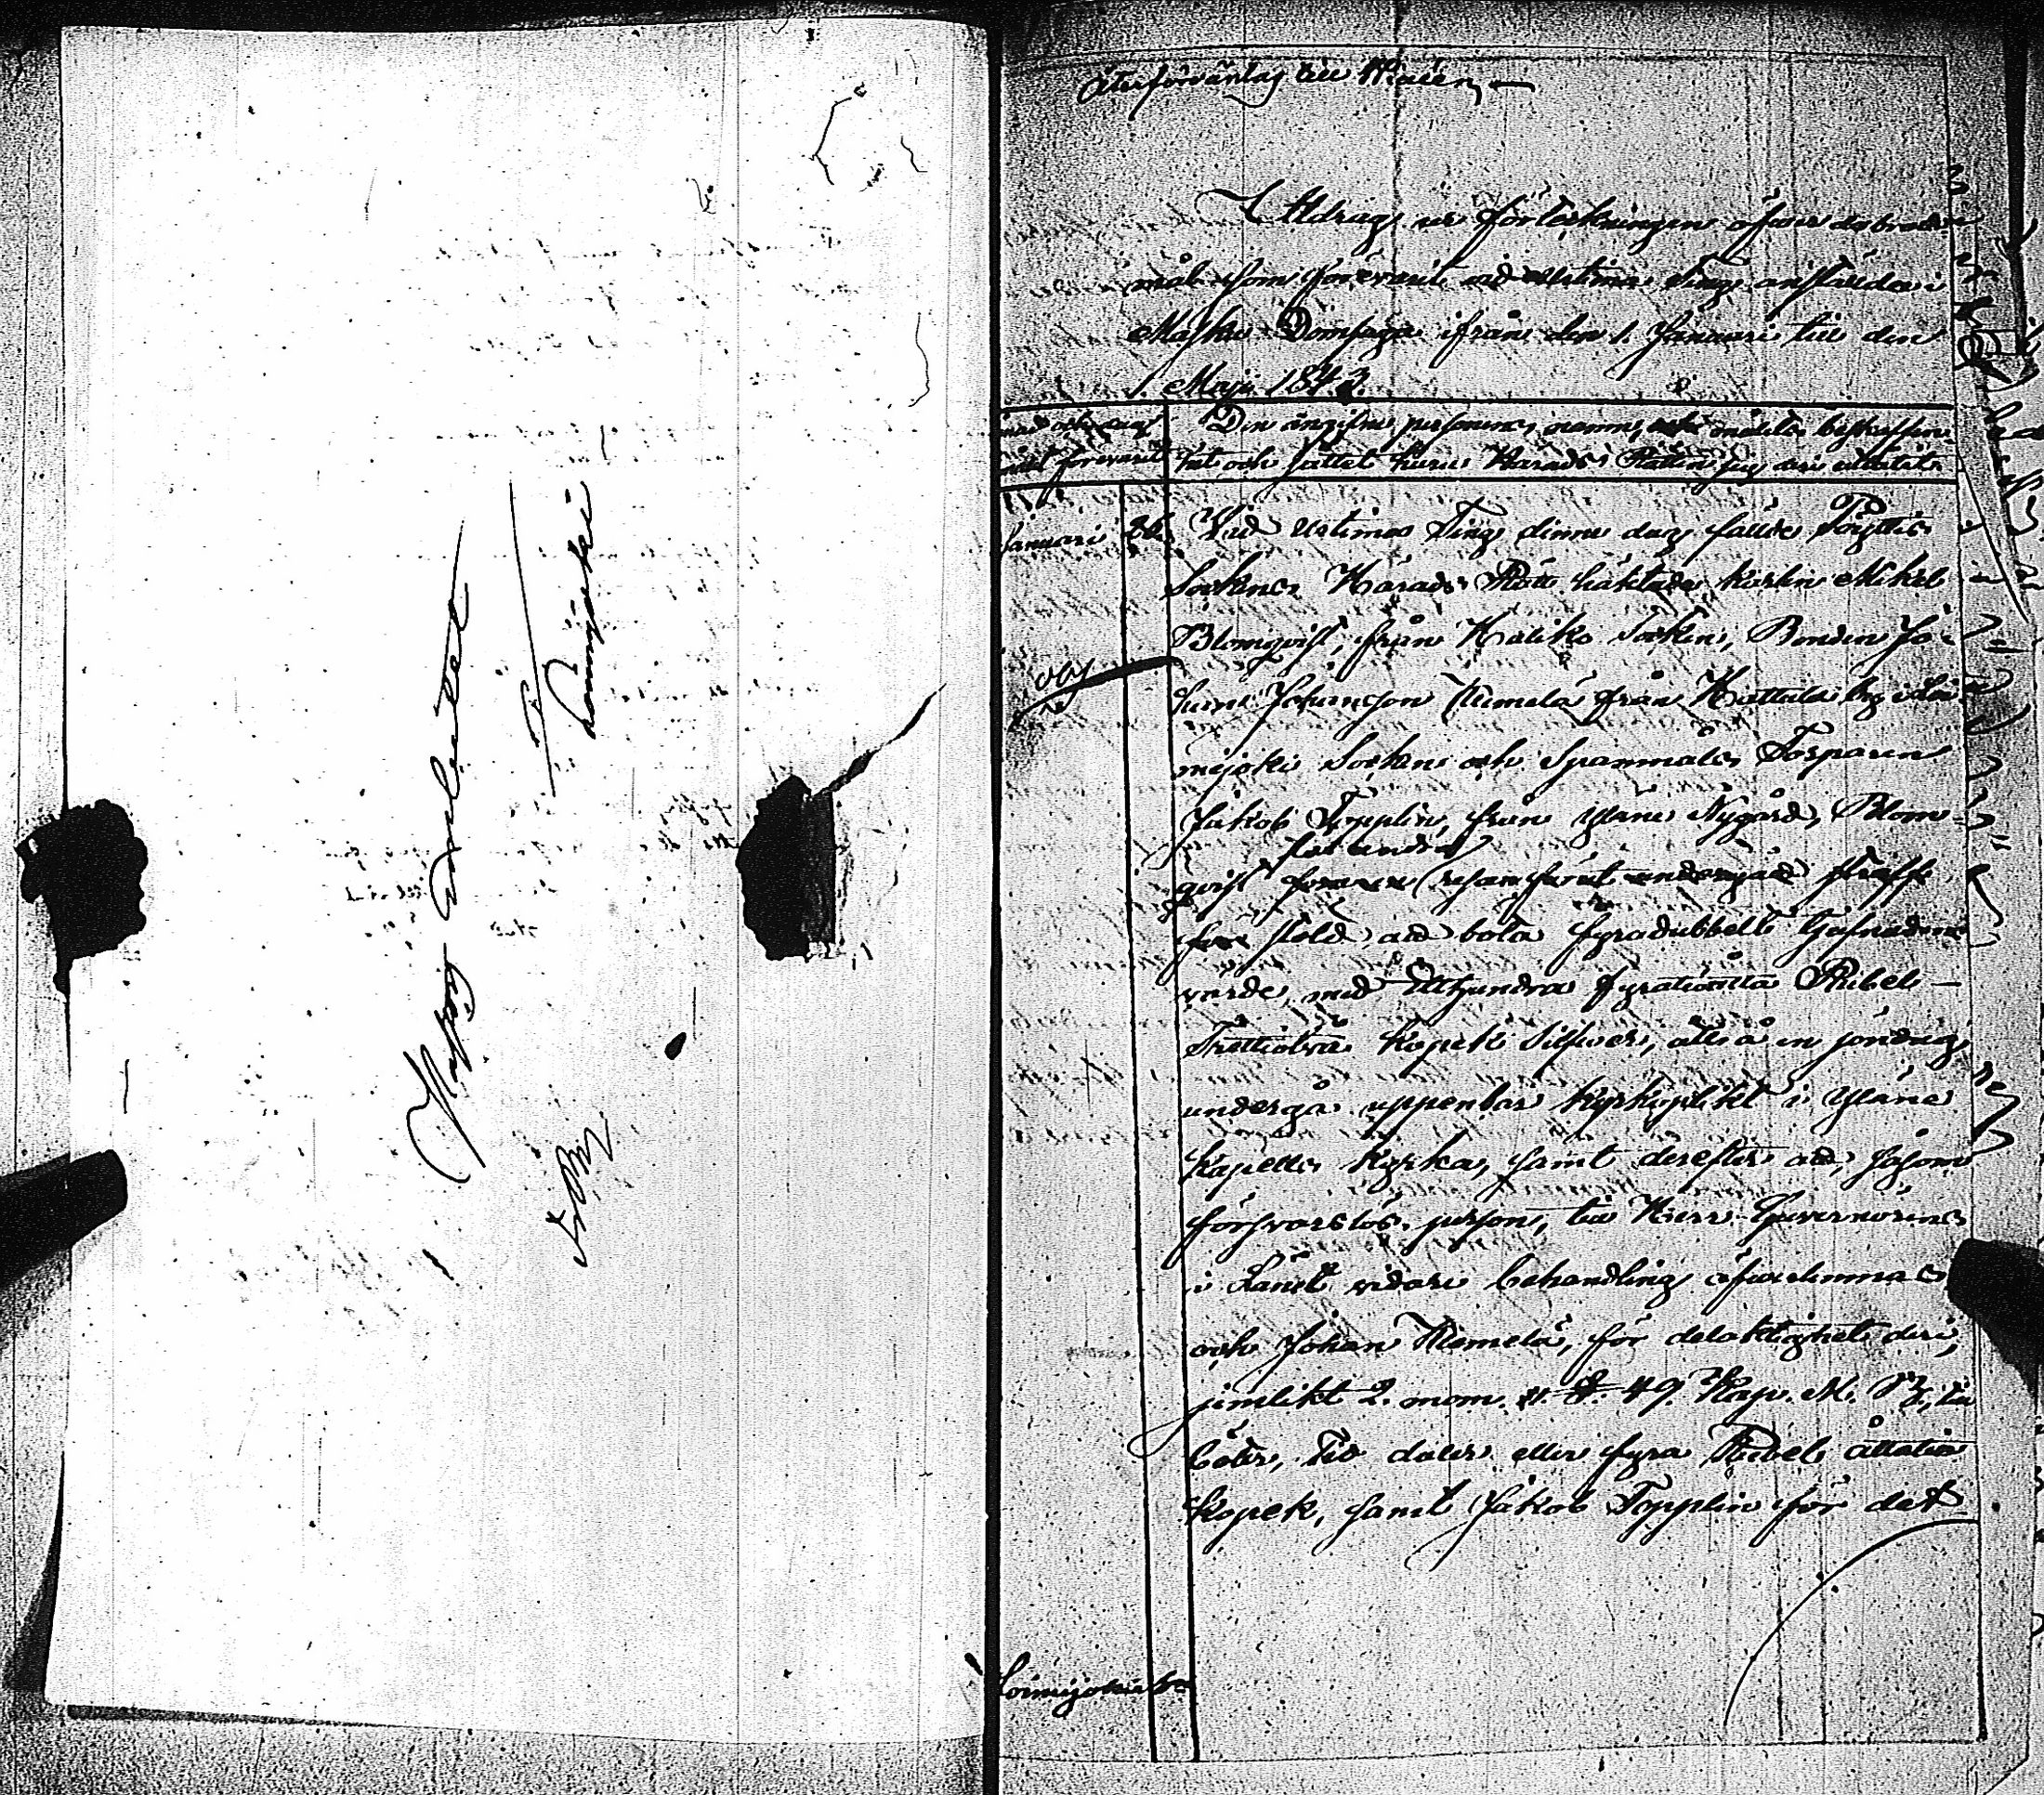 Loimijoki
Återförväntas till
Utdrag ur förteckningen öfwer de brott-
mål som förevarit vid Urtima Ting anställda i
Masku Domsaga ifrån den 1. Januari till den
1. Maji 1843.
Den angifne personens namn, målets beskaffen-
het och sättet huru Härads Rätten sig deri utlåtit.
målet förevarit
Januari
Vid Urtima Ting denna dag fällde Pöyttis
Sockens Härads Rätt häktade karlen Mikel
Blomqvist, från Haliko Socken, Bonden Jo-
han Johansson Niemelä från Hattala by i Loi-
mijoki Socken och Spannmåls Torparen
Jakob Topplin, från Yläne Nygård, Blom-
qvist för andra resan förut undergåd straff
för stöld att böta fyradubbelt tjufnadens
värde, med Etthundra fyratioåtta Rubel
Trettiotvå kopek Silfwer, att å en söndag
undergå uppenbar kyrkoplikt i Yläne
kapells kyrka, samt derefter att, såsom
försvarslös person, till Herr Guvernörens
i Länet vidare behandling öfwerlemnas
och Johan Niemelä, för delaktighet deri,
jemlikt 2. mom. 4. §. 49. Kap. M. B., till
böter, Tio daler eller fyra Rubel åttatio
kopek, samt Jakob Topplin för det
Loimijoki